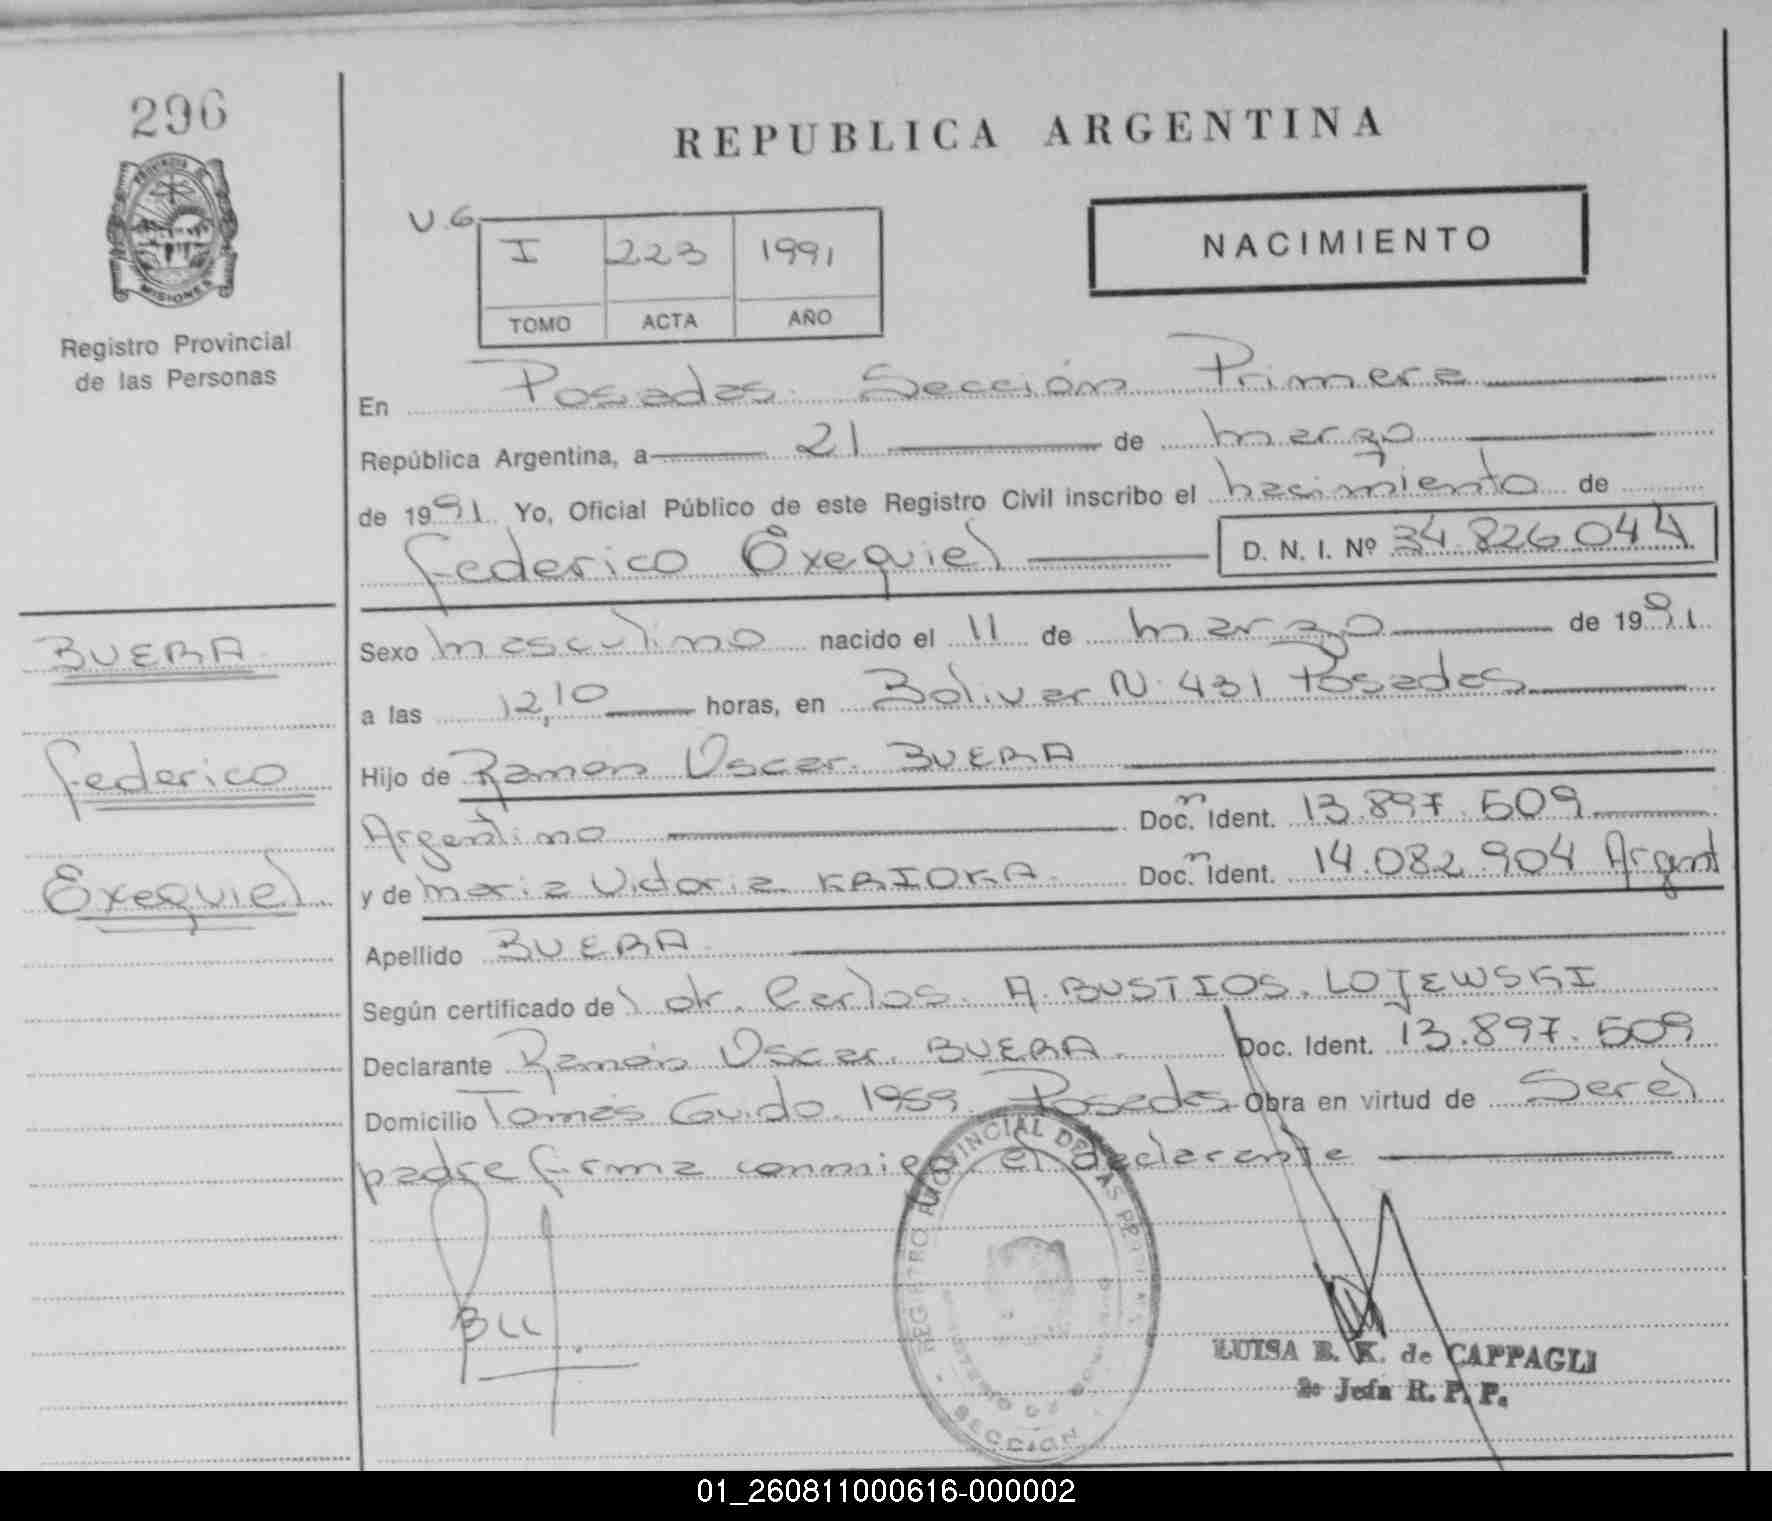 296
PROVINCIA DE
MISIONES
Registro Provincial
de las Personas
REPUBLICA ARGENTINA
NACIMIENTO
U.G
I 223 1991
TOMO ACTA AÑO
En Posadas. Sección Primera
República Argentina, a 21 de marzo
de 1991. Yo, Oficial Público de este Registro Civil inscribo el nacimiento de
Federico Exequiel D. N. I. Nº 34.826.044
Sexo masculino nacido el 11 de marzo de 1991
a las 12,10 horas, en Bolivar N. 431 Posadas
Hijo de Ramon Oscar BUERA
Argentino Doc.n Ident. 13.897.509
y de Maria Victoria KRIOKA Doc.n Ident. 14.082.904 Argent
Apellido BUERA
Según certificado de dr. Carlos A. BUSTIOS. LOJEWSKI
Declarante Ramón Oscar BUERA. Doc. Ident. 13.897.509
Domicilio Tomás Guido 1959 Posadas Obra en virtud de Ser el
padre firma conmigo el declarante
BUERA
Federico
Exequiel
REGISTRO PROVINCIAL DE LAS PERSONAS
MINISTERIO DE GOBIERNO
SECCION 1
LUISA B. K. de CAPPAGLI
2º Jefa R. P. P.
01_260811000616-000002